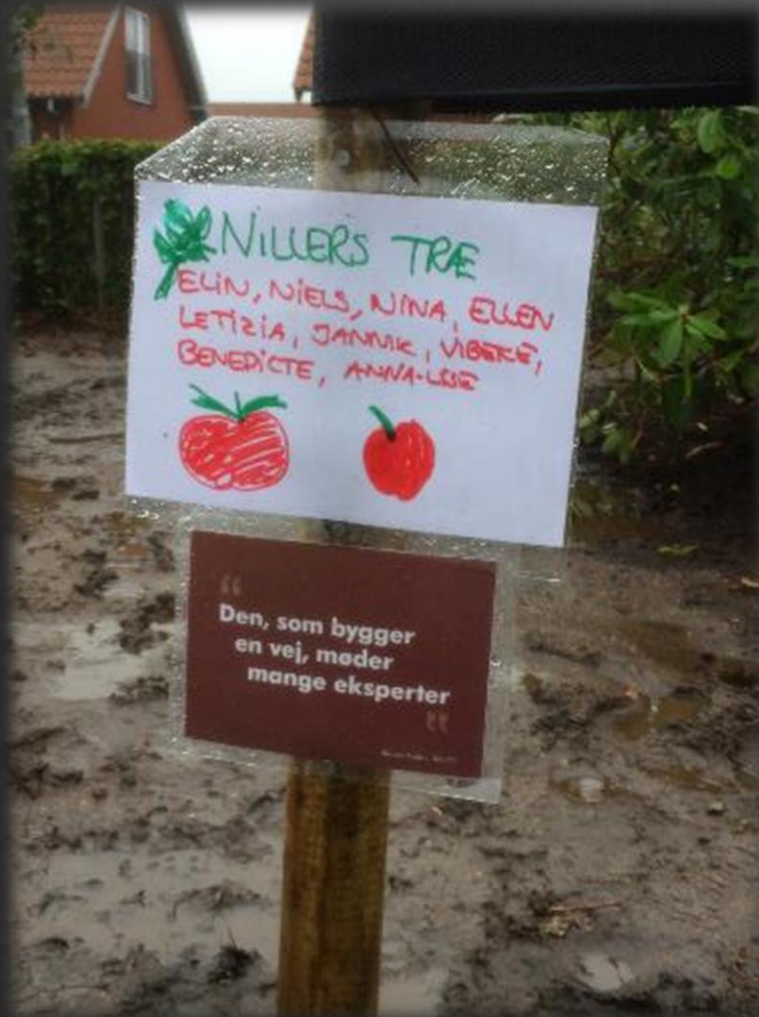 NILLERS TRÆ
ELIN, NIELS, NINA, ELLEN
LETIZIA, JANNIK, VIBEKE,
BENEDICTE, ANNA-LISE
"
Den, som bygger
en vej, møder
mange eksperter
"